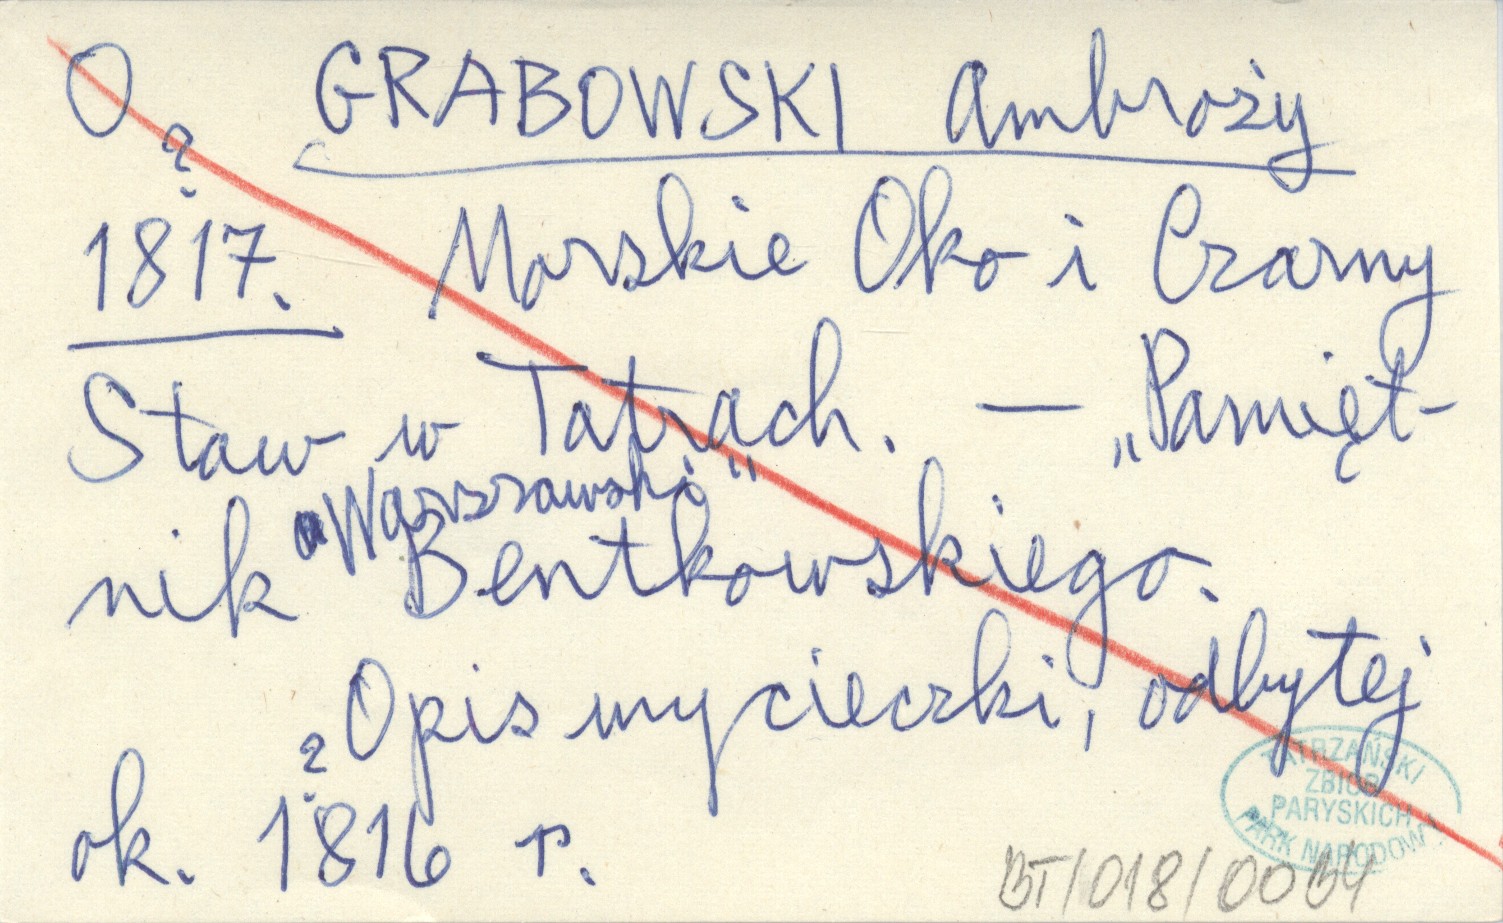 O GRABOWSKI Ambroży
?
1817. Morskie Oko i Czarny
Staw w Tatrach. — „Pamięt-
Warszawski"
nik Bentkowskiego.
Opis wycieczki, odbytej
?
ok. 1816 r.
TATRZAŃSKI
ZBIOR
PARYSKICH
PARK NARODOWY
BT/018/00